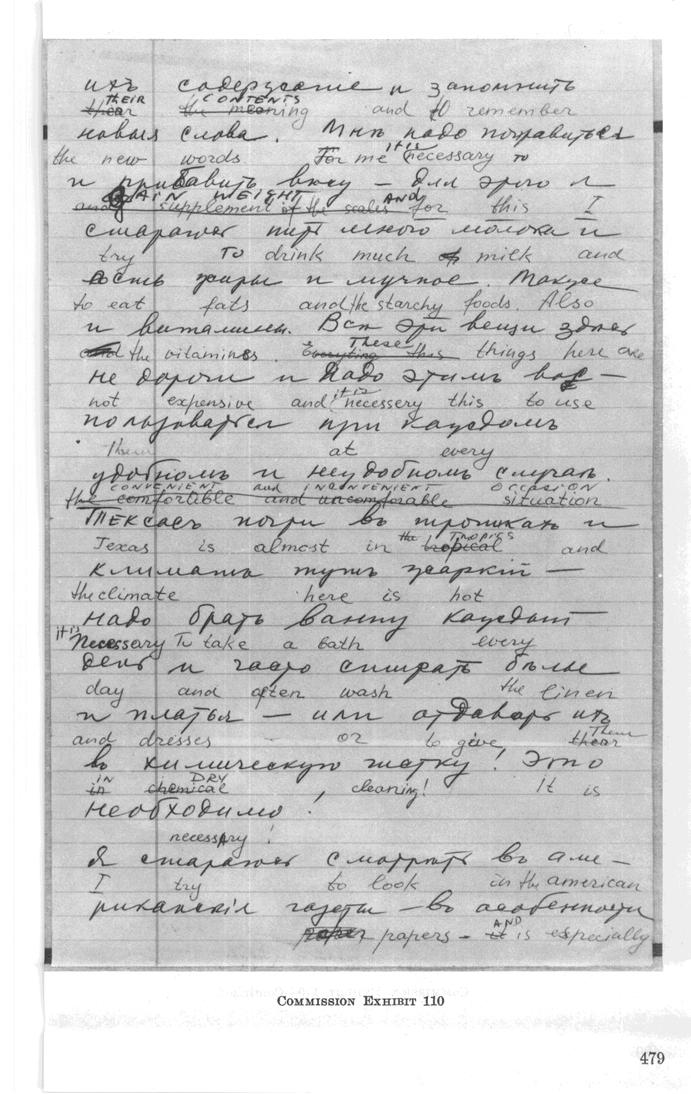 ихъ содержание и запомнить
THEIR CONTENTS
their the meaning and to remember
новыя слова. Мнѣ надо поправиться
it is
the new words For me necessary to
и прибавить вѣсу — для этого я
GAIN WEIGHT AND
and supplement of the scales for this I
стараюсь пить много молока и
try To drink much of milk and
ѣсть жиры и мучное. Также
to eat fats and the starchy foods. Also
и витамины. Всѣ эти вещи здѣсь
These
and the vitamines. Everyting this things here are
не дороги и надо этимъ вос—
it is
not expensive and necessery this to use
пользоваться при каждомъ
Them at every
удобномъ и неудобномъ случаѣ.
CONVENIENT and INCONVENIENT OCCASION
the comfortible and uncomforable situation
Тексасъ почти въ тропикахъ и
the TROPICS
Texas is almost in tropical and
климатъ тутъ жаркій —
the climate here is hot
надо брать ванну каждый
it is
Necessary To take a bath every
день и часто стирать бѣлье
day and often wash the linen
и платья — или отдавать ихъ
Them
and dresses - or to give their
въ химическую чистку! Это
IN DRY
in chemical , cleaning! It is
необходимо!
necessary!
Я стараюсь смотрѣть въ аме—
I try to look in the american
риканскія газеты — въ особенности
AND
paper papers - it is especially
COMMISSION EXHIBIT 110
479